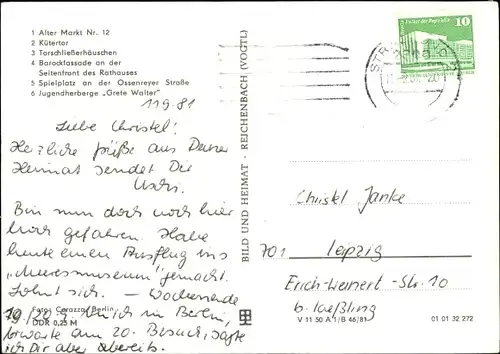 1 Alter Markt Nr. 12
2 Kütertor
3 Torschließerhäuschen
4 Barockfassade an der
Seitenfront des Rathauses
5 Spielplatz an der Ossenreyer Straße
6 Jugendherberge „Grete Walter"
11.9.81
Liebe Christel!
Herzliche Grüße aus Deiner
Heimat sendet Dir
Uschi.
Bin nun doch noch hier
hoch gefahren. Habe
heute einen Ausflug ins
„Meeresmuseum" gemacht.
Lohnt sich. – Wochenende
19/20.9. bin ich in Berlin,
erwarte am 20. Besuch, sagte
ich Dir aber bereits.
Foto: Corazza, Berlin
DDR 0,25 M
BILD UND HEIMAT · REICHENBACH (VOGTL)
10
Christel Janke
701 Leipzig
Erich-Weinert-Str. 10
b. Kaeßling
V 11 50 A 1/B 46/81
01 01 32 272